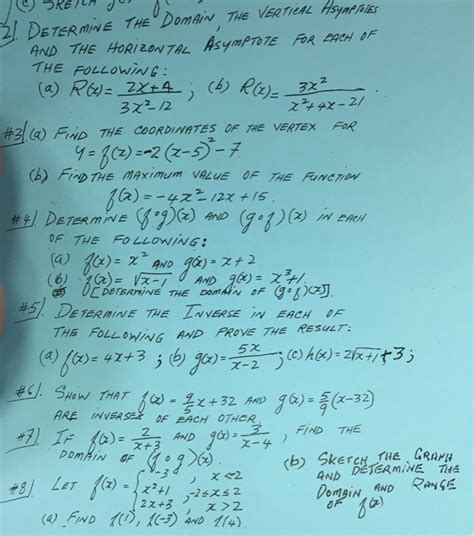 (c) SKETCH
2/. DETERMINE THE DOMAIN, THE VERTICAL ASYMPTOTES
AND THE HORIZONTAL ASYMPTOTE FOR EACH OF
THE FOLLOWING:
(a) R(x) = (2x+4)/(3x²-12) ; (b) R(x) = 3x²/(x²+4x-21)
#3/. (a) FIND THE COORDINATES OF THE VERTEX FOR
y = f(x) = -2(x-5)² - 7.
(b) FIND THE MAXIMUM VALUE OF THE FUNCTION
f(x) = -4x² - 12x + 15.
#4/. DETERMINE (f∘g)(x) AND (g∘f)(x) IN EACH
OF THE FOLLOWING:
(a) f(x) = x² AND g(x) = x + 2
(b) f(x) = √(x-1) AND g(x) = x³+1.
[DETERMINE THE DOMAIN OF (g∘f)(x)].
#5/. DETERMINE THE INVERSE IN EACH OF
THE FOLLOWING AND PROVE THE RESULT:
(a) f(x) = 4x+3 ; (b) g(x) = 5x/(x-2) ; (c) h(x) = 2√(x+1) + 3 ;
#6/. SHOW THAT f(x) = 9/5 x + 32 AND g(x) = 5/9 (x-32)
ARE INVERSES OF EACH OTHER.
#7/. IF f(x) = 2/(x+3) AND g(x) = 3/(x-4) , FIND THE
DOMAIN OF (f∘g)(x).
#8/. LET f(x) = { -3 , x < -2
x²+1 , -2 ≤ x ≤ 2
2x+3 , x > 2
(a) FIND f(1), f(-3) AND f(4).
(b) SKETCH THE GRAPH
AND DETERMINE THE
DOMAIN AND RANGE
OF f(x)